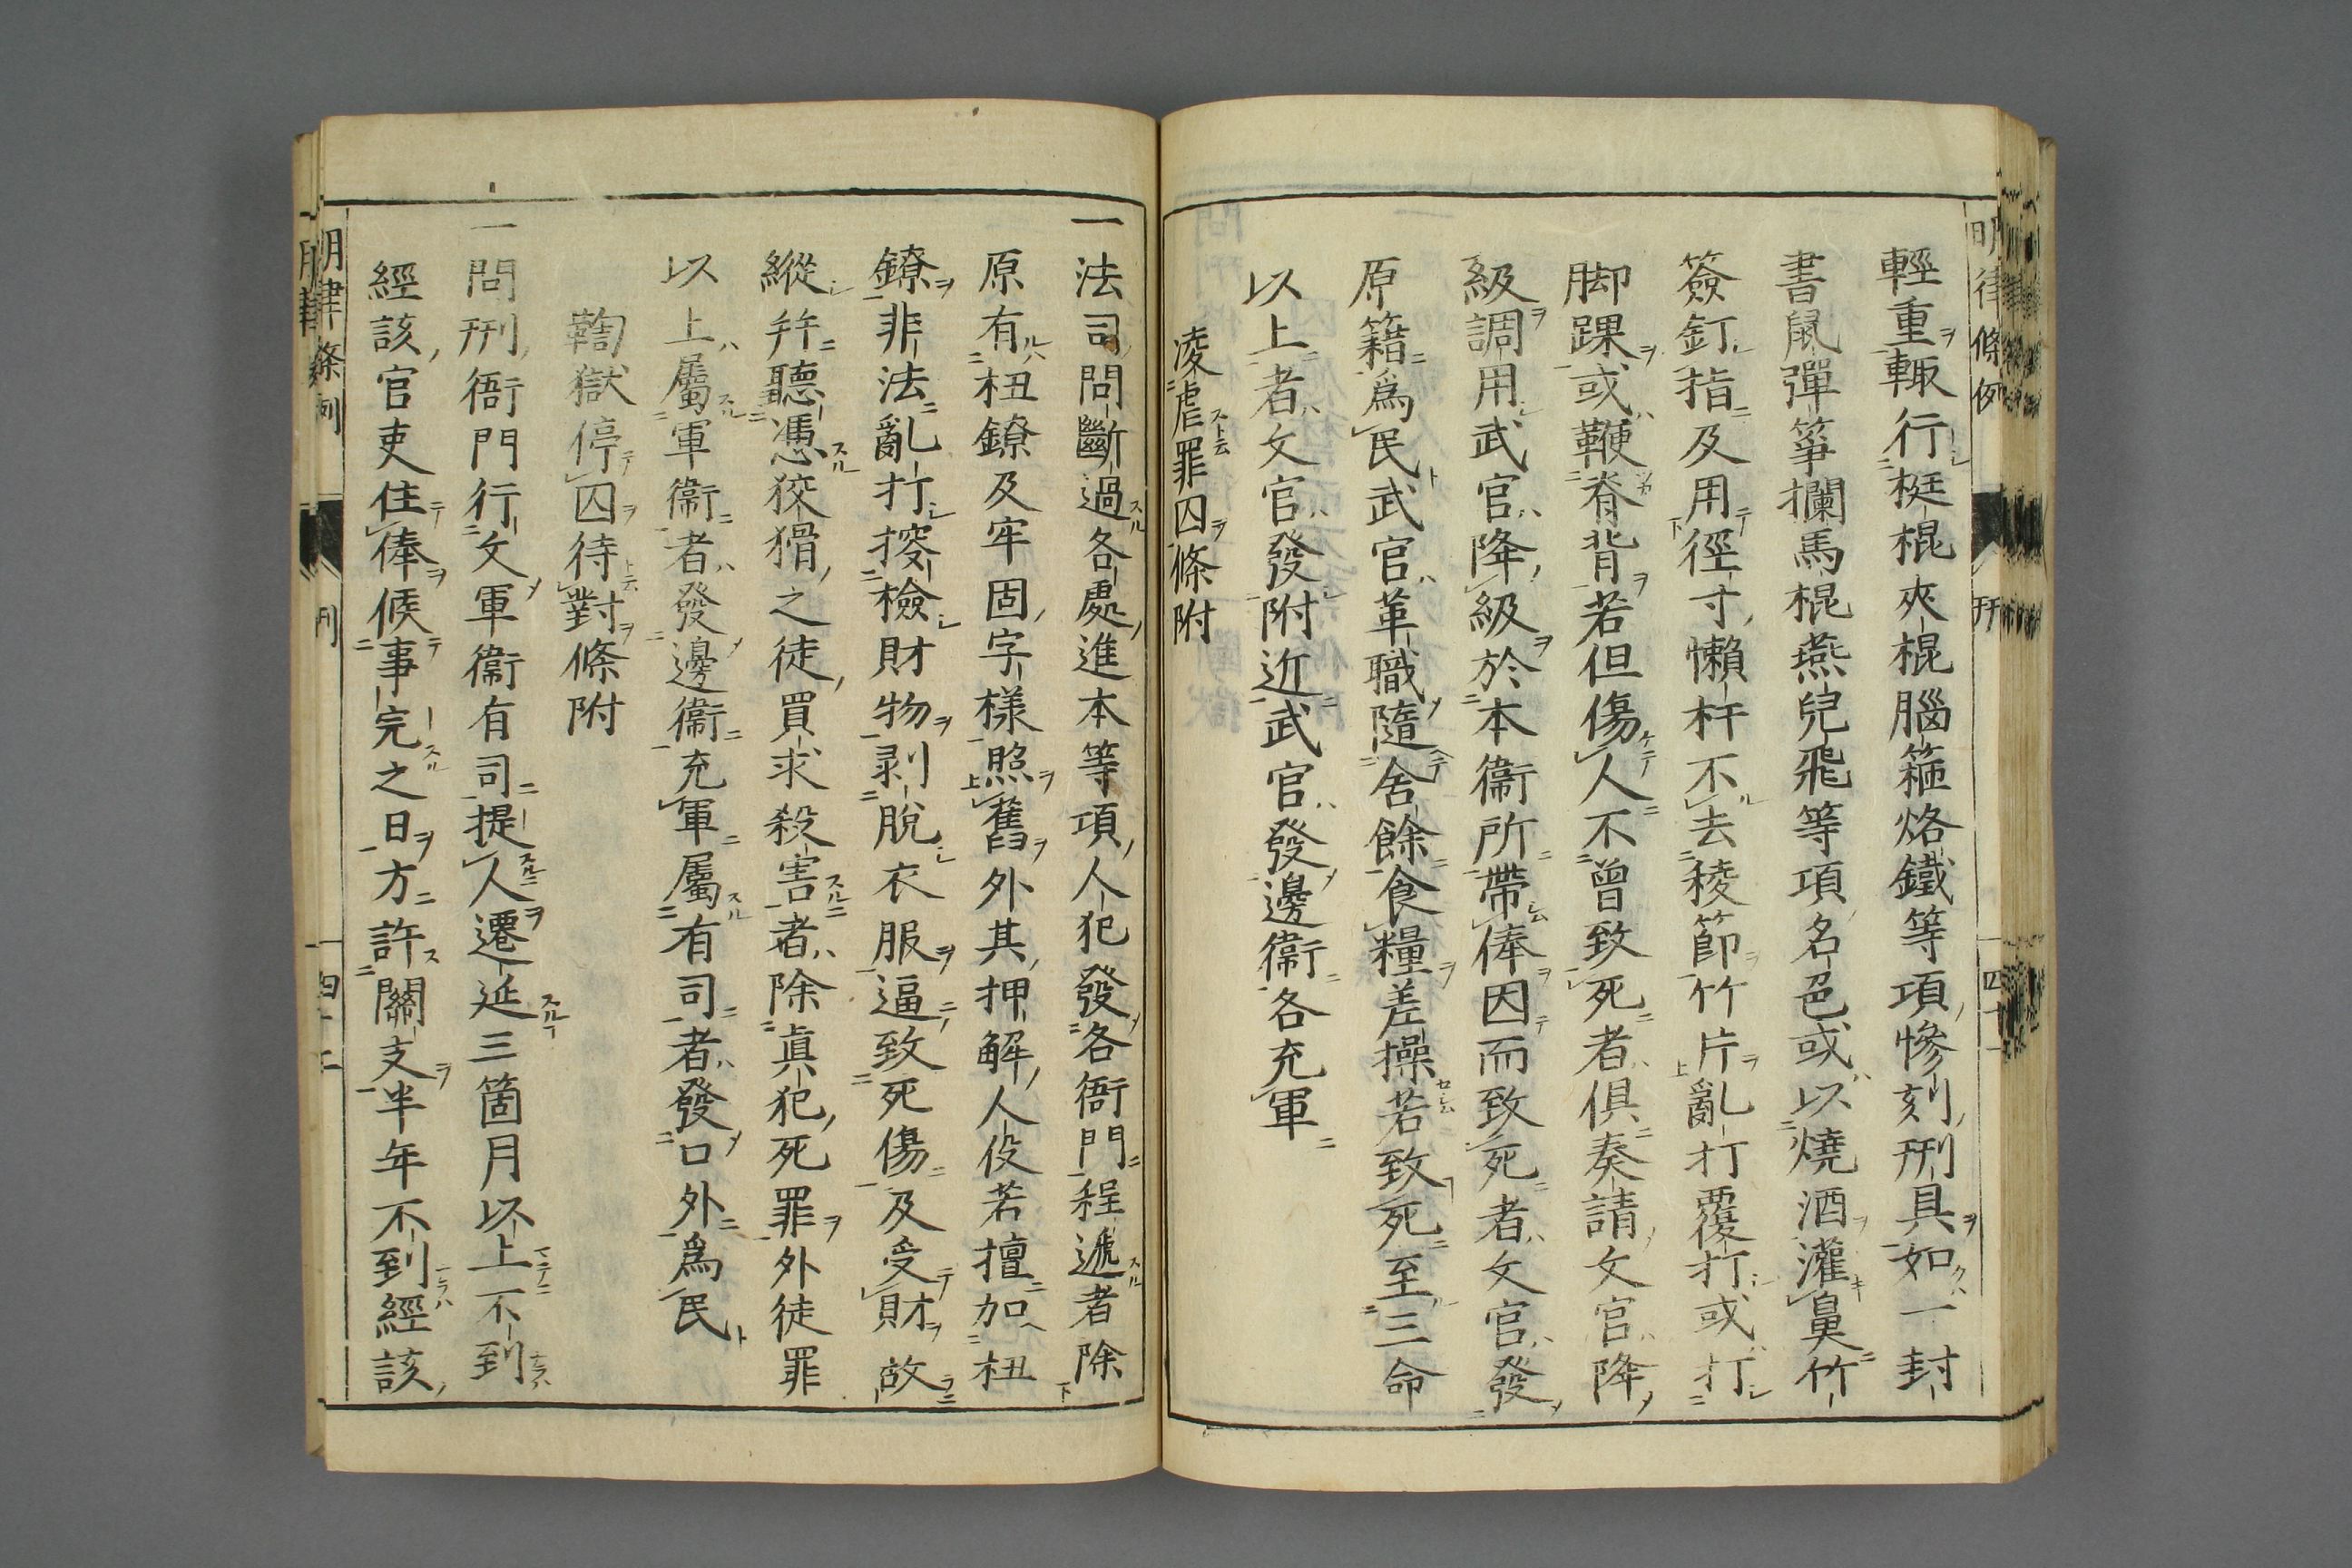 明律條例 刑 四十一
輕重輙行挺棍夾棍腦箍烙鐵等項慘刻刑具如一封
書鼠彈箏攔馬棍燕兒飛等項名色或以燒酒灌鼻竹
簽釘指及用徑寸懶杆不去稜節竹片亂打覆打或打
脚踝或鞭脊背若但傷人不曾致死者俱奏請文官降
級調用武官降級於本衞所帶俸因而致死者文官發
原籍爲民武官革職隨舍餘食糧差操若致死至三命
以上者文官發附近武官發邊衞各充軍
凌虐罪囚條附
一法司問斷過各處進本等項人犯發各衙門程遞者除
原有杻鐐及牢固字樣照舊外其押解人役若擅加杻
鐐非法亂打搜檢財物剥脫衣服逼致死傷及受財故
縱幷聽憑狡猾之徒買求殺害者除眞犯死罪外徒罪
以上屬軍衞者發邊衞充軍屬有司者發口外爲民
鞫獄停囚待對條附
一問刑衙門行文軍衞有司提人遷延三箇月以上不到
經該官吏住俸候事完之日方許關支半年不到經該
明律條例